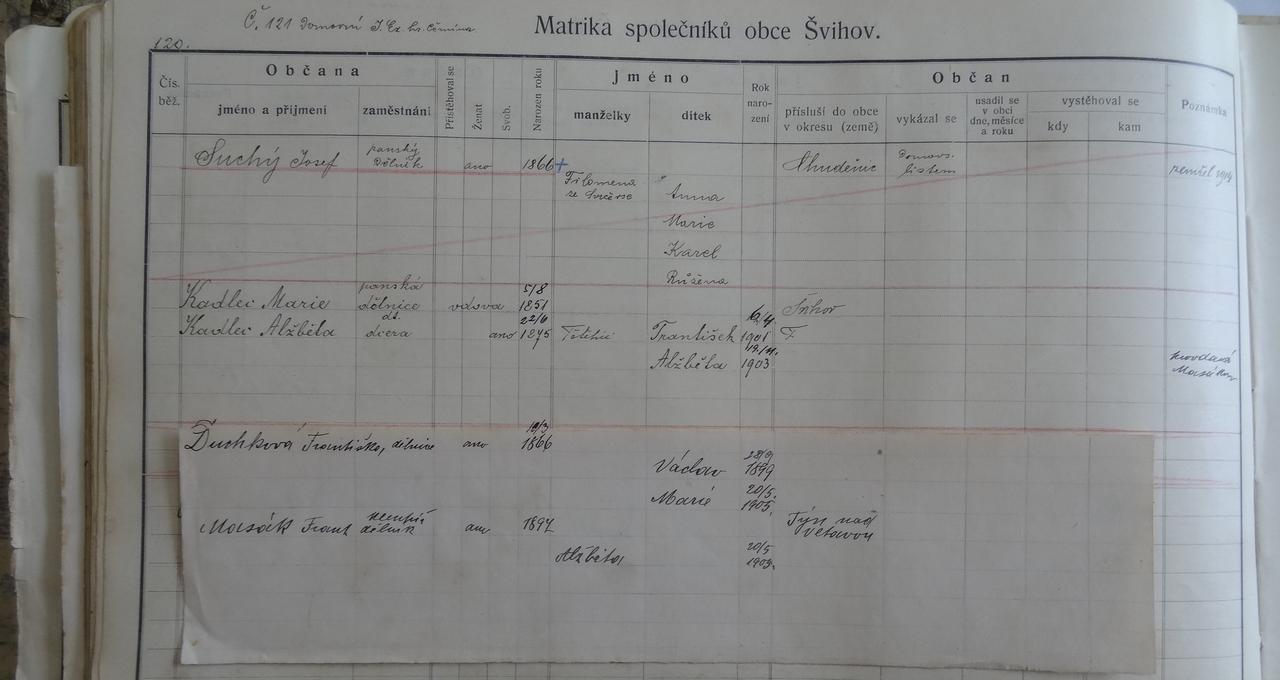 120.
Č. 121 Domovní
Matrika společníků obce Švihov.
Čís. běž.
Občana
jméno a příjmení
zaměstnání
Přistěhoval se
Ženat
Svob.
Narozen roku
Jméno
manželky
dítek
Rok naro- zení
Občan
přísluší do obce v okresu (země)
vykázal se
usadil se v obci dne, měsíce a roku
vystěhoval se
kdy
kam
Poznámka
Suchý Josef panský dělník ano 1866 + Chudenic Domovs. listem zemřel 1914
Filomena ze Anna
Marie
Karel
Růžena
Kadlec Marie panská dělnice vdova 5/8 1851
Kadlec Alžběta dt. dcera ano 22/6 1875 František 1901
Alžběta 1903 provdaná
Duchková dělnice ano 10/3 1866
Václav 28/9 1899
Marie 20/5. 1905.
Masák Frant dělník ano 1897 Týn nad Vltavou
Alžběta 20/5 1903.